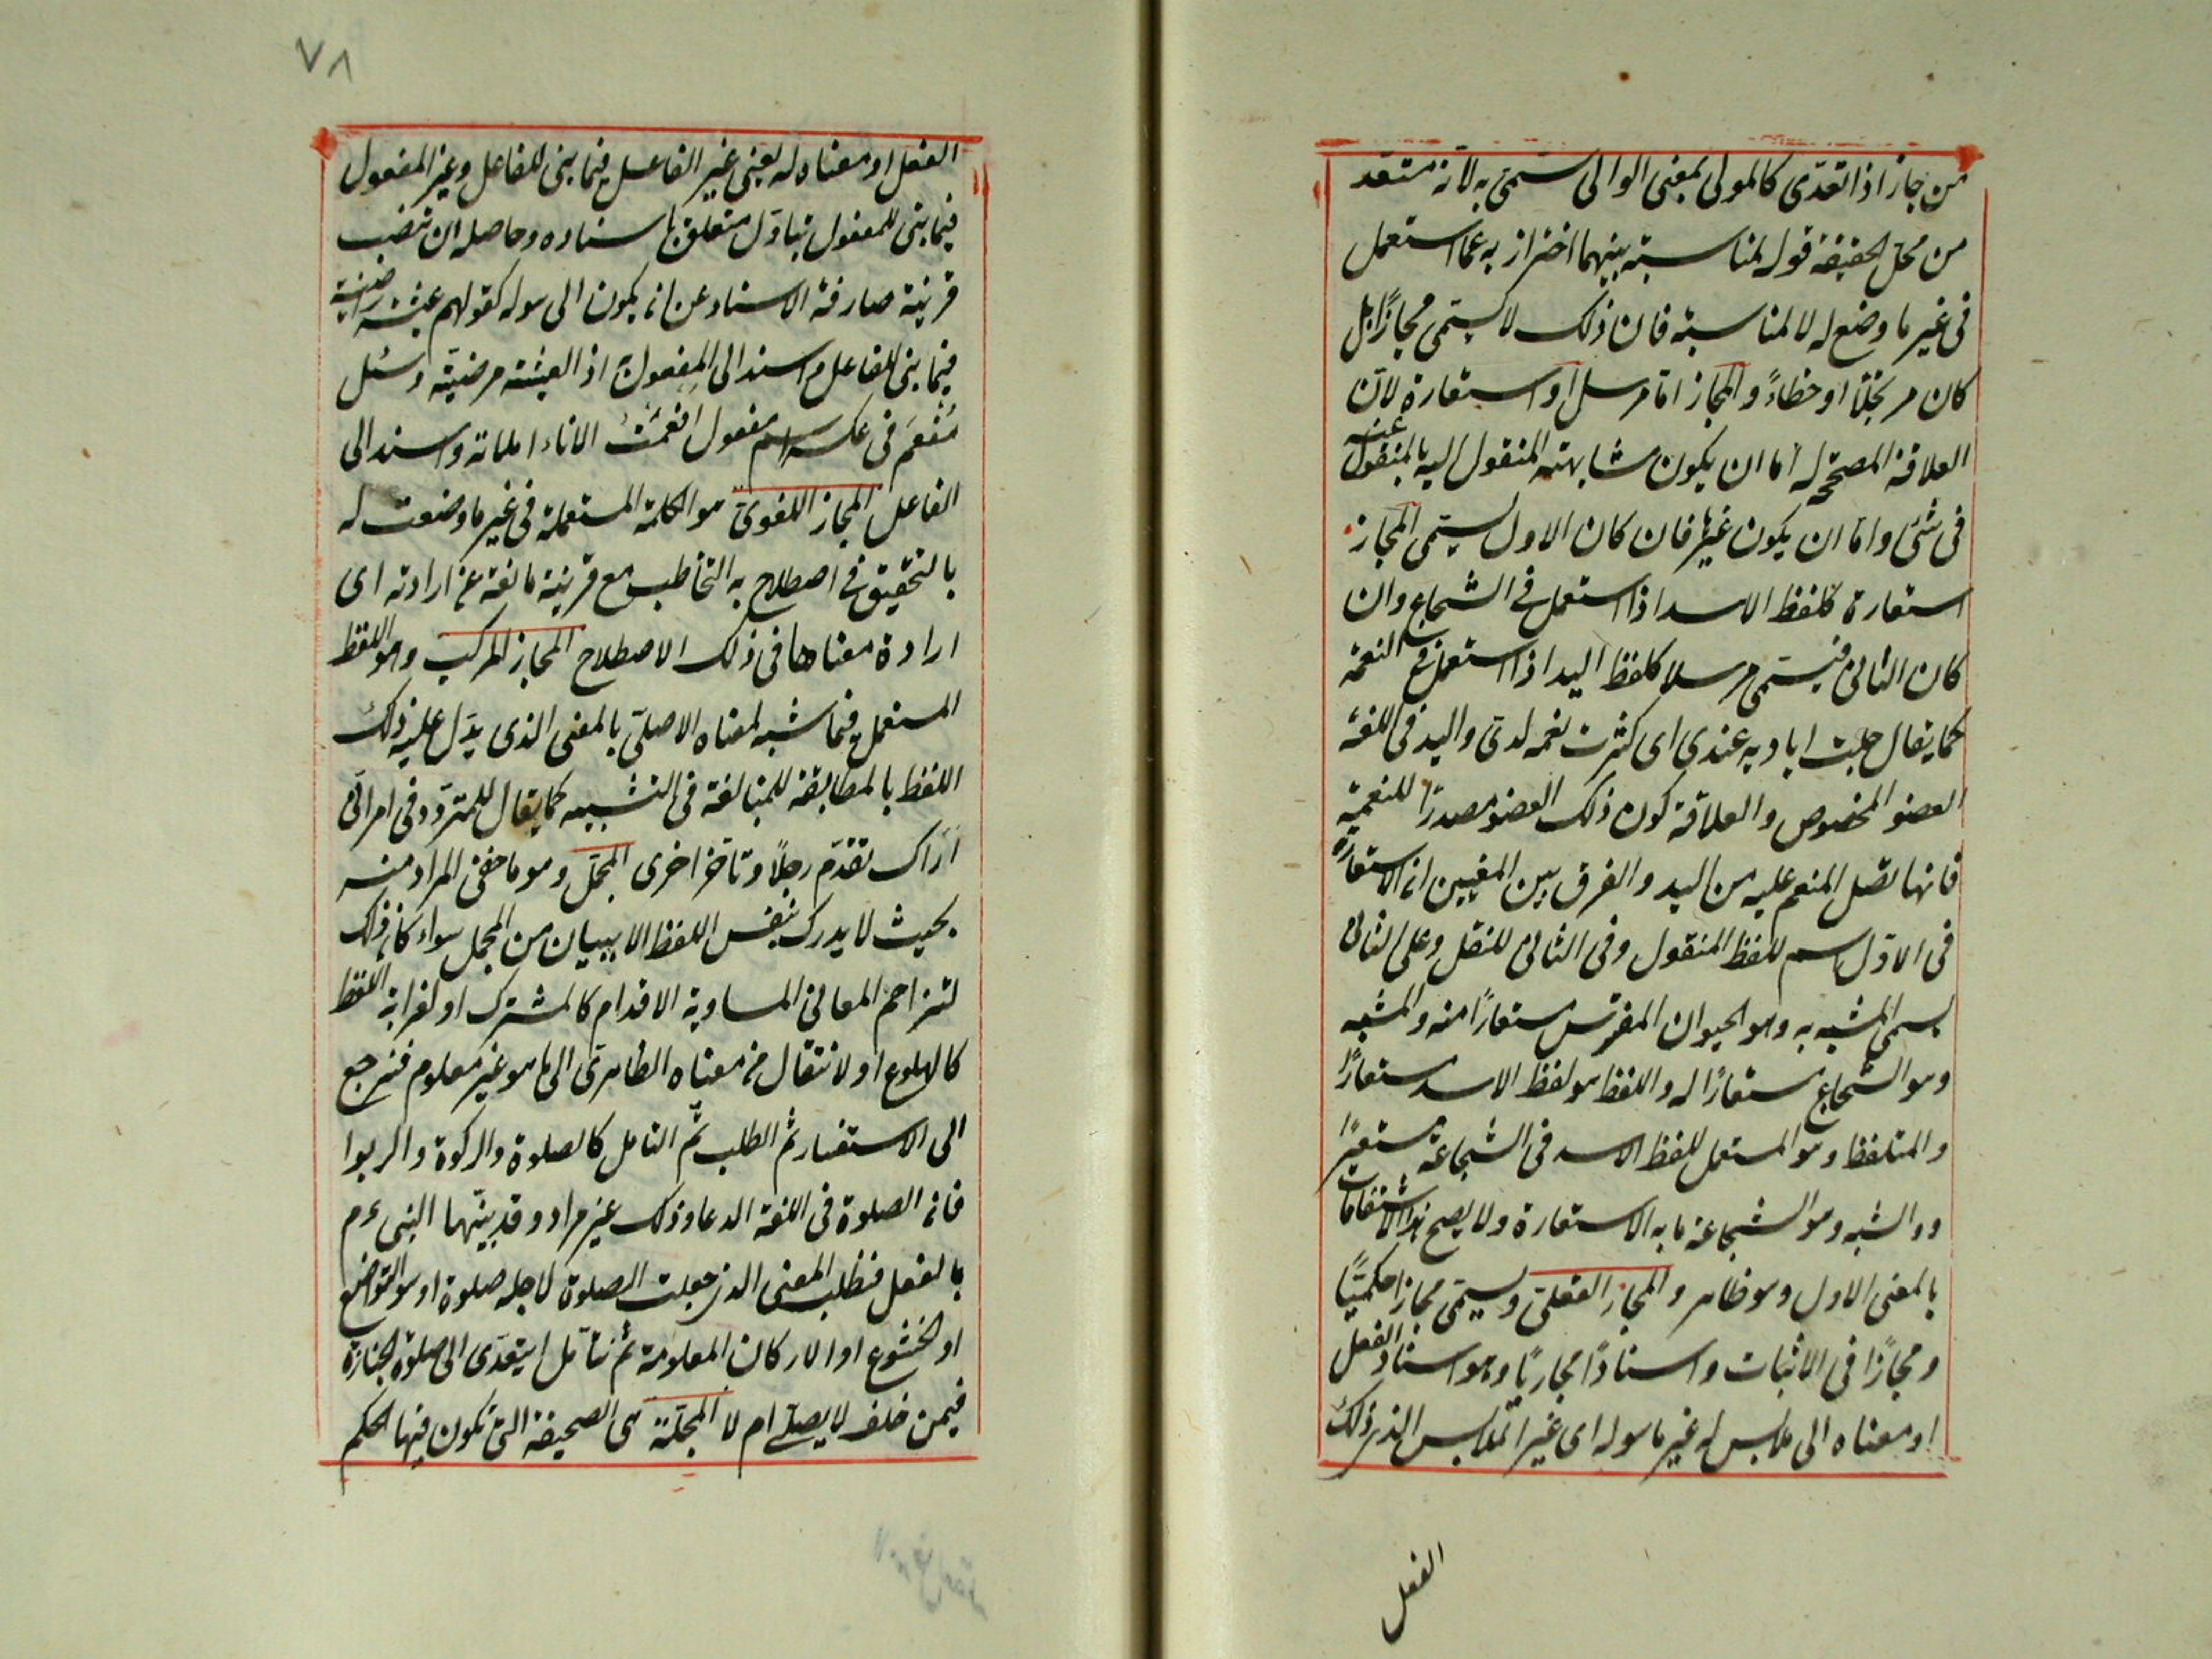 من جاز اذا تعدّى كالمولى بمعنى الوالى سمّى به لانّه متعدّ
من محل الحقيقة قوله لمناسبة بينهما احتراز به عما استعمل
فى غير ما وضع له لا لمناسبة فان ذلك لا يسمّى مجازًا بل
كان مرتجلًا او خطاءً والمجاز امّا مرسل او استعارة لانّ
العلاقة المصححة له اما ان يكون مشابهته المنقول اليه بالمنقول عنه
فى شئ واما ان يكون غيرها فان كان الاول يسمّى المجاز
استعارة كلفظ الاسد اذا استعمل فى الشجاع وان
كان الثانى فيسمّى مرسلا كلفظ اليد اذا استعمل فى النعمة
كما يقال جلت اياديه عندى اى كثرت نعمه لدىّ واليد فى اللغة
العضو المخصوص والعلاقة كون ذلك العضو مصدرًا للنعمة
فانها تصل المنعم عليه من اليد والفرق بين المعنيين ان الاستعارة
فى الاوّل اسم للفظ المنقول وفى الثانى للنقل وعلى الثانى
يسمى المشبه به وهو الحيوان المفترس مستعارًا منه والمشبه
وهو الشجاع مستعارًا له واللفظ هو لفظ الاسد مستعارًا
والمتلفظ وهو المستعمل للفظ الاسد فى الشجاعة مستعيرًا
ووالشبه وهو الشجاعة ما به الاستعارة ولا يصح هذا الاشتقاقات
بالمعنى الاول وهو ظاهر والمجاز العقلىّ ويسمّى مجازا حكميًّا
ومجازًا فى الاثبات واسنادًا مجازيًا وهو اسناد الفعل
او معناه الى ملابس له غير ما هو له اى غير الملابس الذى ذلك
الفعل
٧٨
الفعل او معناه له يعنى غير الفاعل فيما بنى للفاعل وغير المفعول
فيما بنى للمفعول بتاوّل متعلق باسناده وحاصله ان تنصب
قرينة صارفة الاسناد عن ان يكون الى ما هو له كقولهم عيشة راضية
فيما بنى للفاعل واسند الى المفعول به اذ العيشة مرضيّة وسيل
مُفعَم فى عكسه اسم مفعول افعمتُ الاناء املاته واسند الى
الفاعل المجاز اللغوىّ هو الكلمة المستعملة فى غير ما وضعت له
بالتحقيق فى اصطلاح به التخاطب مع قرينة مانعة عن ارادته اى
ارادة معناها فى ذلك الاصطلاح المجاز المركب وهو اللفظ
المستعمل فيما شبه لمعناه الاصلىّ بالمعنى الذى يدّل عليه ذلك
اللفظ بالمطابقة للمبالغة فى التشبيه كما يقال للمتردّد فى امر انّى
اراك تقدّم رجلًا وتاخر اخرى المجمل وهو ما خفى المراد منه
بحيث لا يدرك بنفس اللفظ الا ببيان من المجمل سواء كان ذلك
لتزاحم المعانى المساوية الاقدام كالمشترك او لغرابة اللفظ
كالهلوع او لانتقال من معناه الظاهرىّ الى ما هو غير معلوم فنرجع
الى الاستفسار ثم الطلب ثمّ التامل كالصلوة والزكوة والربوا
فان الصلوة فى اللغة الدعا وذلك غير مراد وقد بيّنها النبى عم
بالفعل فنطلب المعنى الذى جعلت الصلوة لاجله صلوة اهو التواضع
او الخشوع او الاركان المعلومة ثم نتأمل ايتعدّى الى صلوة الجنازة
فيمن حلف لا يصلى ام لا المجلّة هى الصحيفة التى تكون فيها الحكم